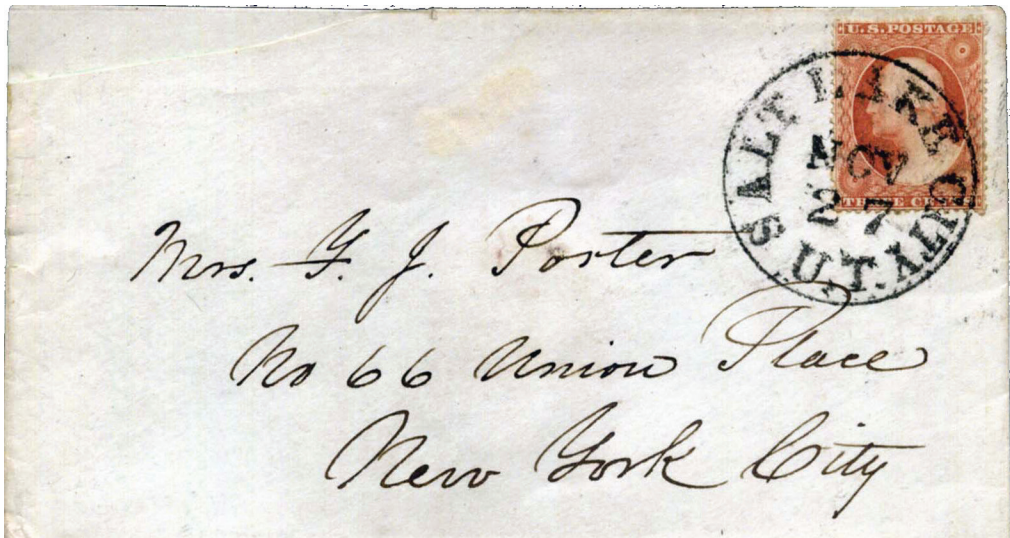 U.S. POSTAGE
THREE CENTS
SALT LAKE CITY. U.T.
NOV
27
Mrs. F. J. Porter
No 66 Union Place
New York City